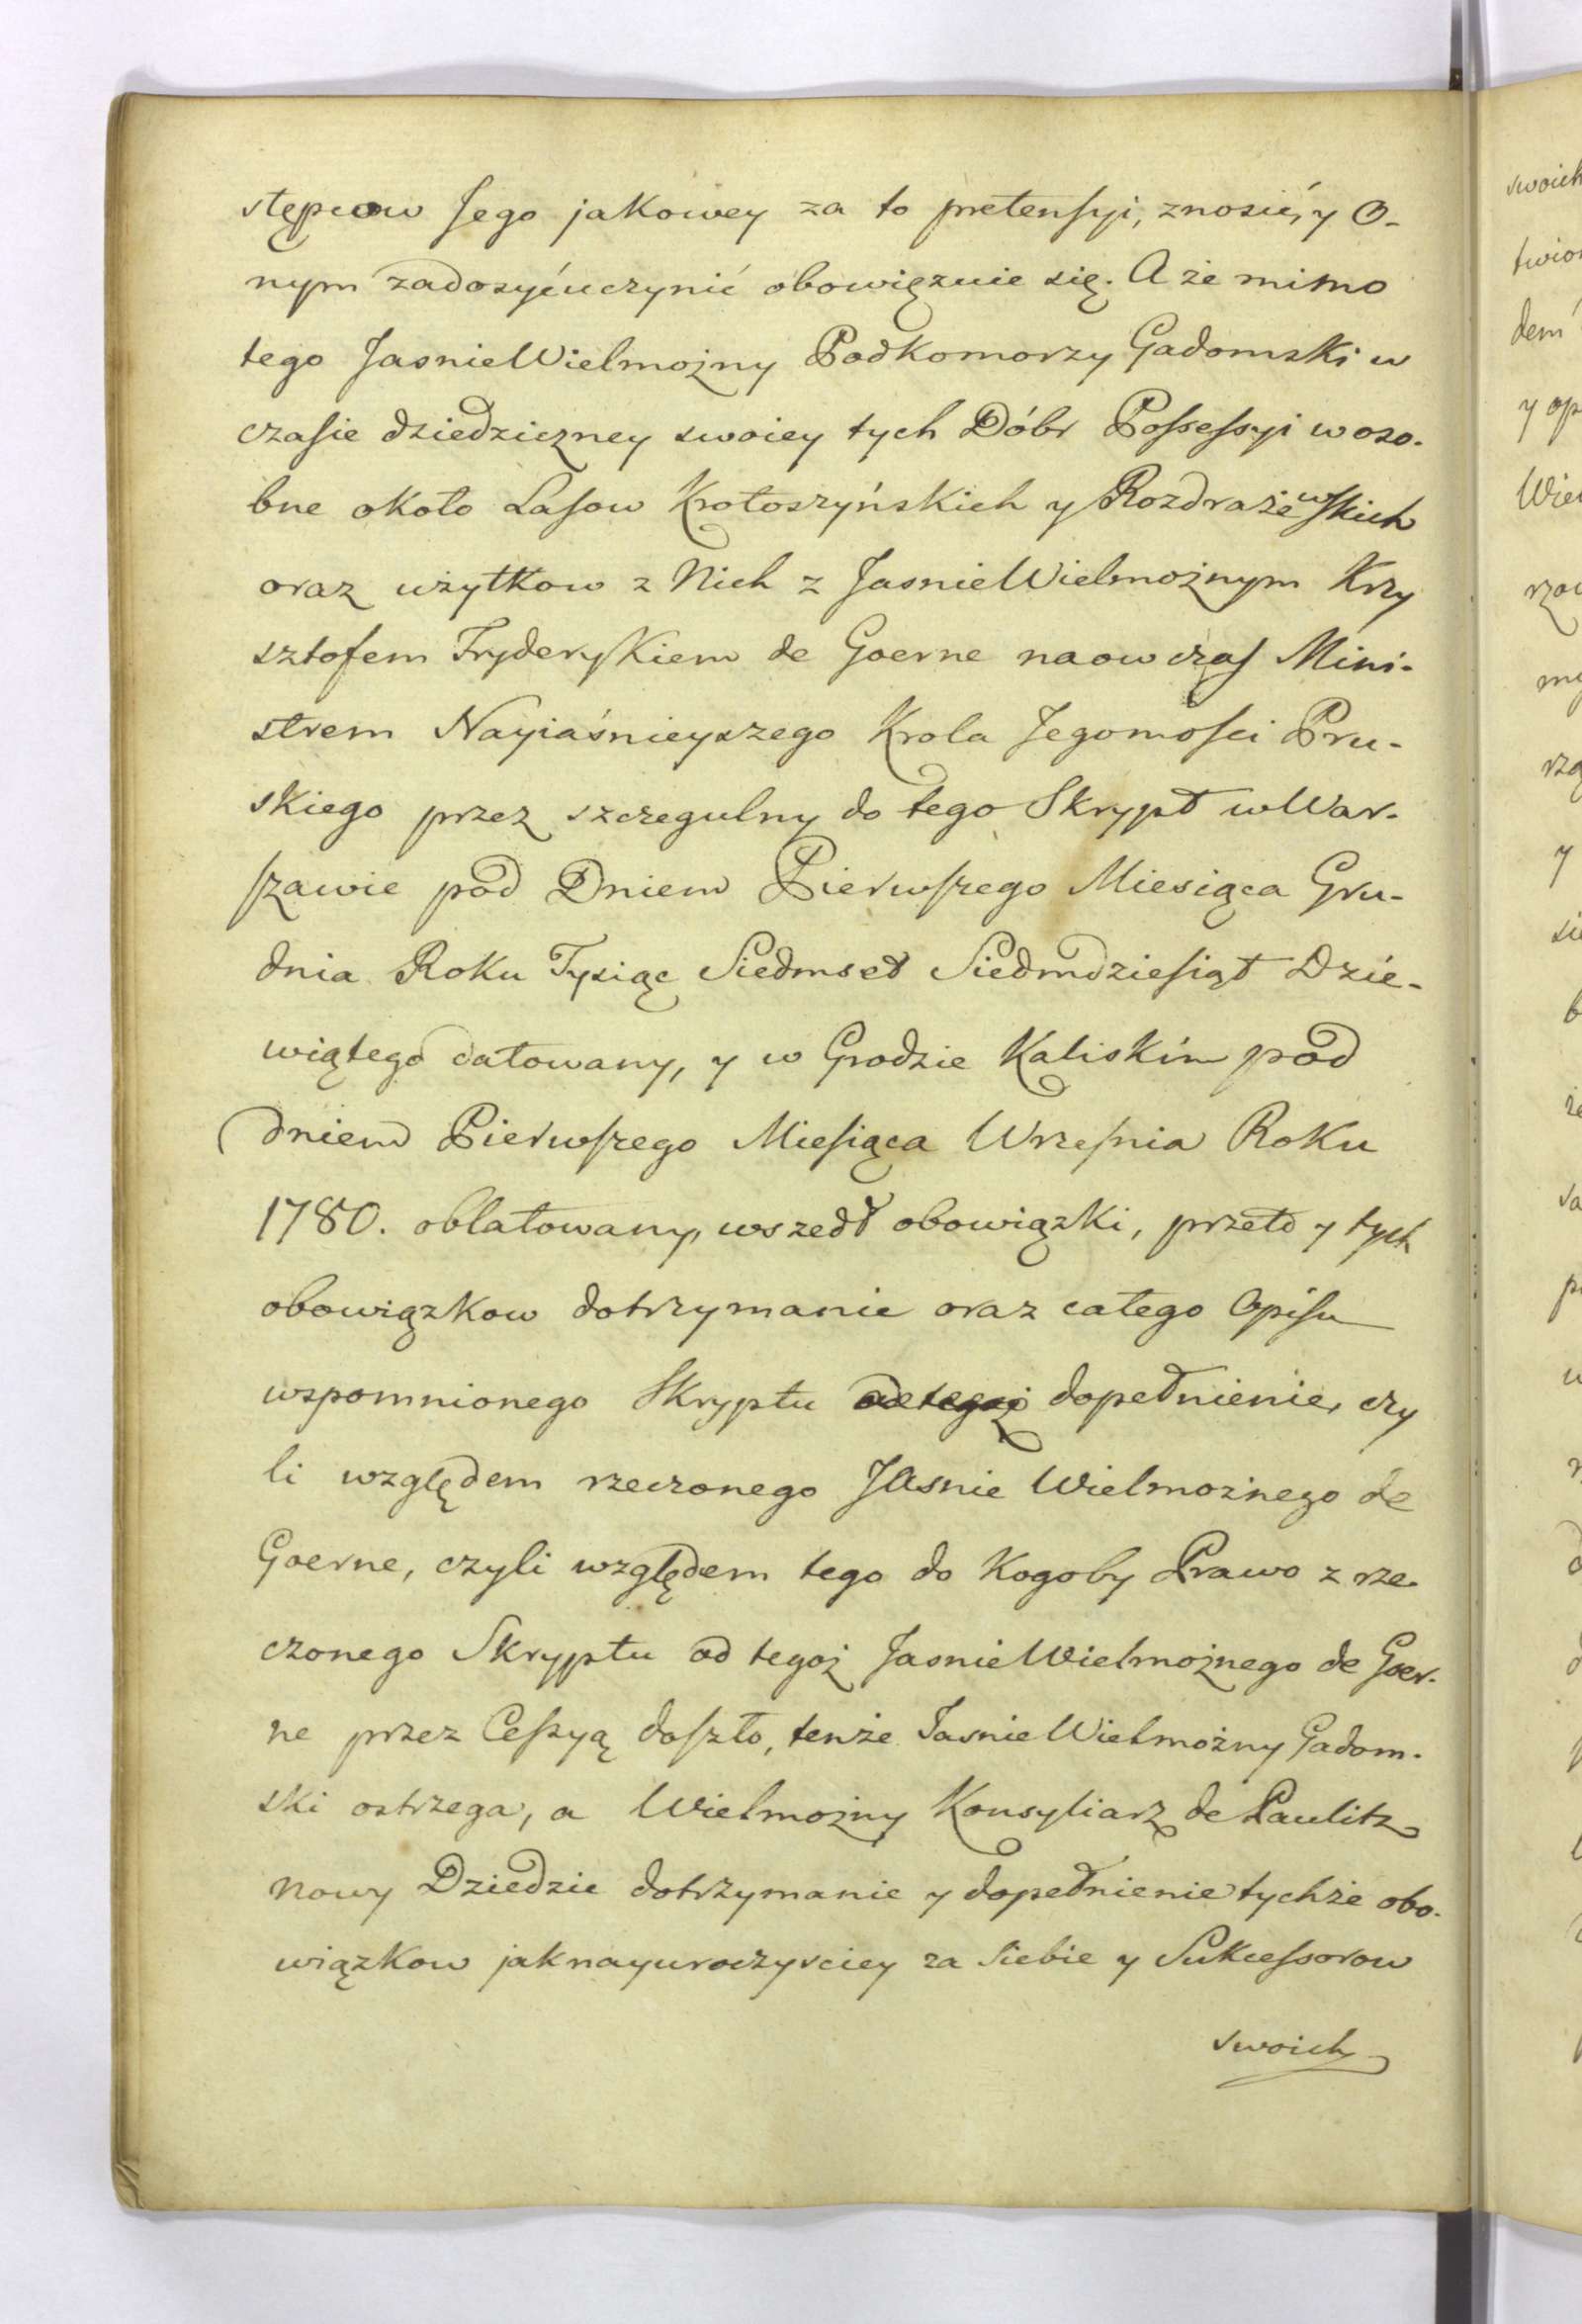 stępcow Jego jakowey za to pretensyi, znosić, y O-
nym zadosyćuczynić obowięzuie się. A że mimo
tego JasnieWielmożny Podkomorzy Gadomski w
czasie dziedziczney swoiey tych Dóbr Possessyi w oso-
bne około Lasow Krotoszyńskich y Rozdrażewskich
oraz użytkow z Nich z JasnieWielmożnym Krzy
sztofem Fryderykiem de Goerne naowczas Mini-
strem Nayiaśnieyszego Krola Jegomosci Pru-
skiego przez szczegulny do tego Skrypt w War-
szawie pod Dniem Pierwszego Miesiąca Gru-
dnia Roku Tysiąc Siedmset Siedmdziesiąt Dzie-
wiątego datowany, y w Grodzie Kaliskim pod
dniem Pierwszego Miesiąca Wrzesnia Roku
1780. oblatowany, wszedł obowiązki, przeto y tych
obowiązkow dotrzymanie oraz całego Opisu
wspomnionego Skryptu od tegoż dopełnienie, czy
li względem rzeczonego JAsnie Wielmożnego de
Goerne, czyli względem tego do Kogoby Prawo z rze-
czonego Skryptu od tegoż JasnieWielmożnego de Goer-
ne przez Cessyą doszło, tenże JasnieWielmożny Gadom-
ski ostrzega, a Wielmożny Konsyliarz de Paulitz
nowy Dziedzic dotrzymanie y dopełnienie tychże obo-
wiązkow jaknayuroczysciey za Siebie y Sukcessorow
swoich
swoich
dem
y op
Wie
y